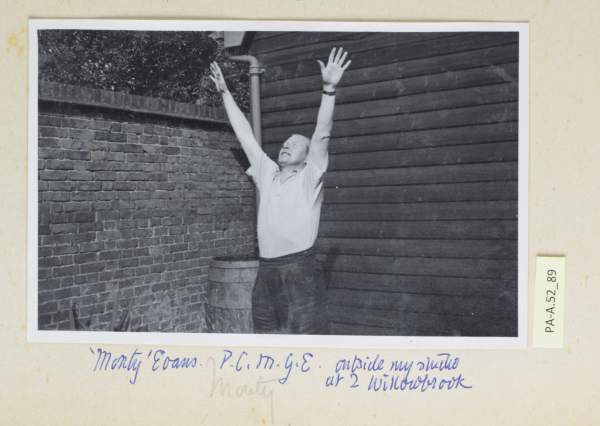 'Monty' Evans. P.C.M.G.E. outside my studio
at 2 Willowbrook
Monty
PA-A.52_89